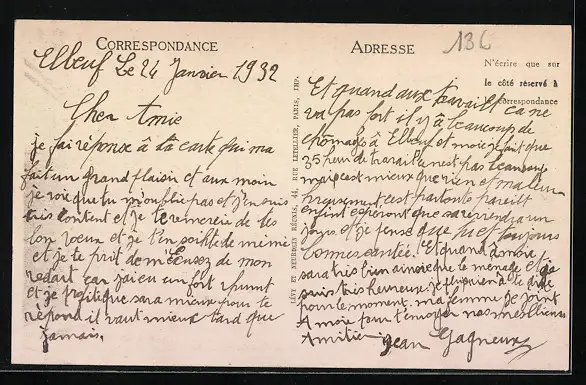 CORRESPONDANCE
Elbeuf Le 24 Janvier 1932
Cher Amie
je fai réponse â ta carte qui ma
fait un grand plaisir et aux moin
je voie que tu m'oublie pas et j'en suis
très content et je te remercie de tes
bon vœux et je t'en souhite de même
et je te prit de m'excuser de mon
redart car j'ai eu un fort rhume
et je profite que sa va mieux pour te
répond il vaut mieux tard que
jamais.
LÉVY ET NEURDEIN RÉUNIS, 44, RUE LETELLIER, PARIS, IMP.
ADRESSE
136
N'écrire que sur
le côté réservé à
correspondance
Et quand aux travail ca ne
va pas fort il y â beaucoup de
chomages â Elbeuf et moie je fait que
35 heure de travail ce nest pas beaucoup
mais c'est mieux que rien et malheu-
reusement c'est partout pareil
enfint esperont que sa reviendra un
jour et je pense que tu et toujours
bonne santée. Et quand â moie
sa va très bien ainsie que le menage et je
suis très heureux je
pour le moment. ma femme se joint
A moie pour t'envoyer nos meilleures
Amitier Jean Gagneux